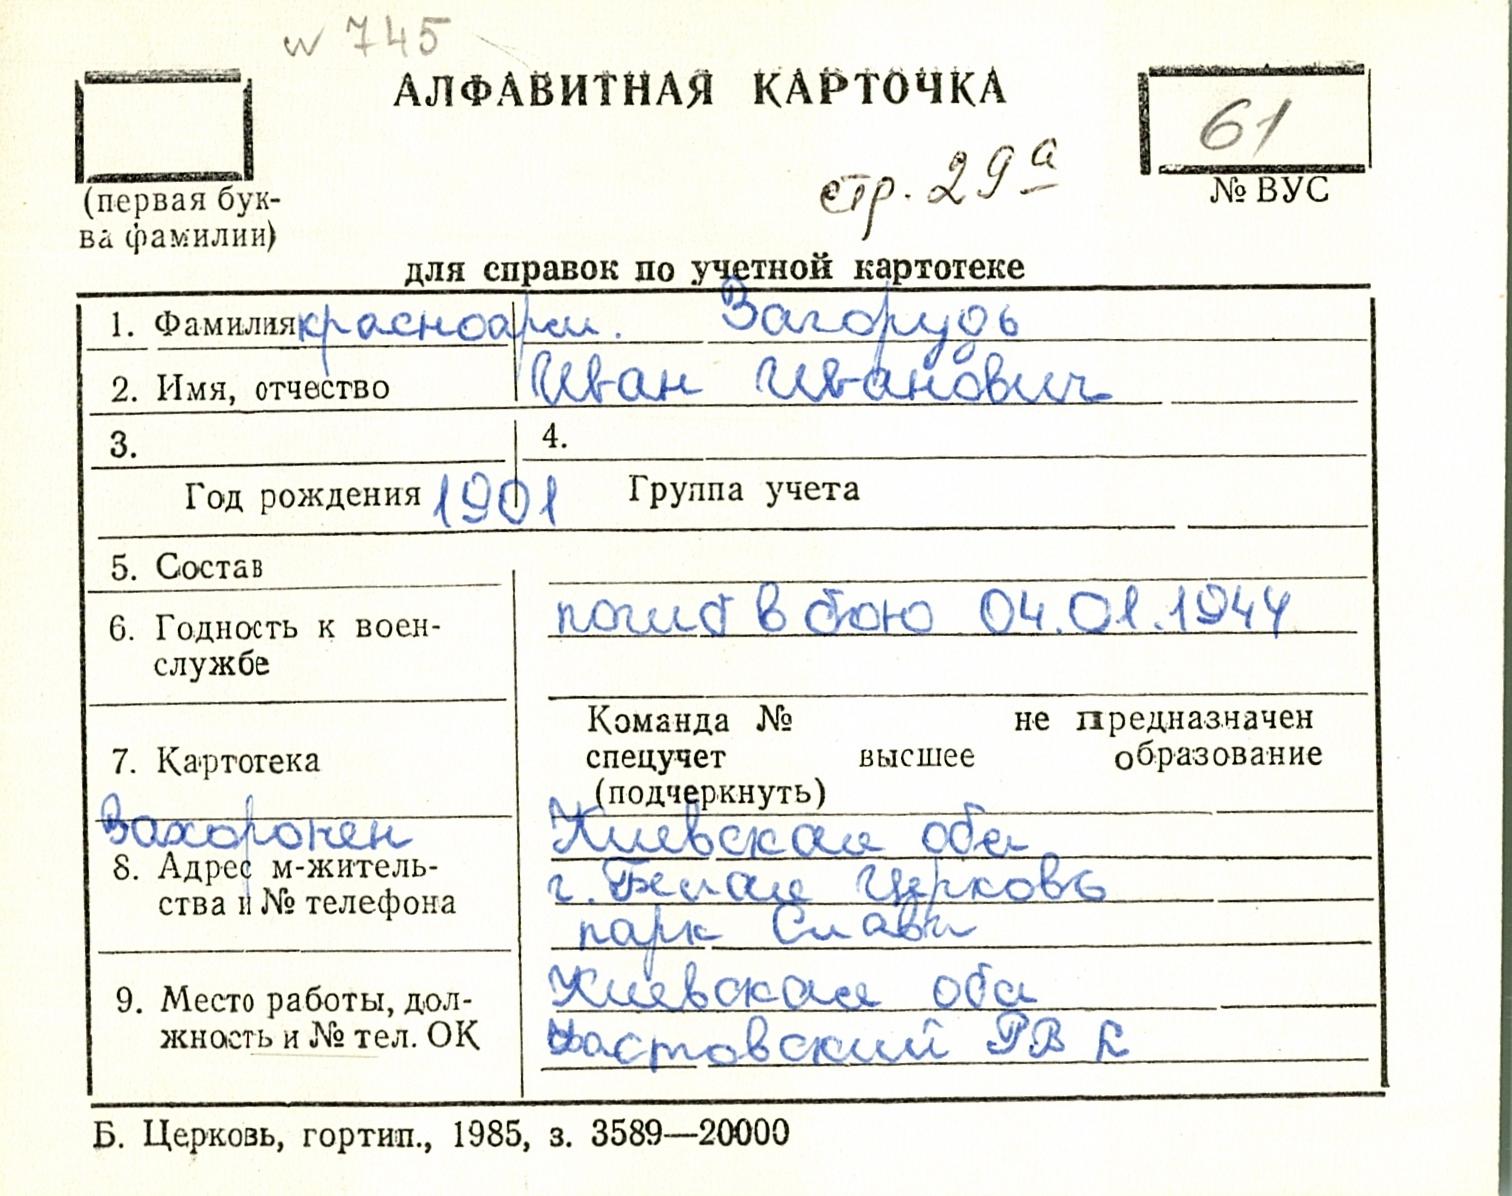 w 745
АЛФАВИТНАЯ КАРТОЧКА
61
стр. 29а
№ ВУС
(первая бук-
ва фамилии)
для справок по учетной картотеке
1. Фамилия красноарм. Загорудь
2. Имя, отчество Иван Иванович
3. 4.
Год рождения 1901 Группа учета
5. Состав
погиб в бою 04.01.1944
6. Годность к воен-
службе
Команда № не предназначен
7. Картотека спецучет высшее образование
(подчеркнуть)
Захоронен Киевская обл
8. Адрес м-житель- г. Белая Церковь
ства и № телефона
парк Славы
9. Место работы, дол- Киевская обл
жность и № тел. ОК Фастовский РВК
Б. Церковь, гортип., 1985, з. 3589—20000